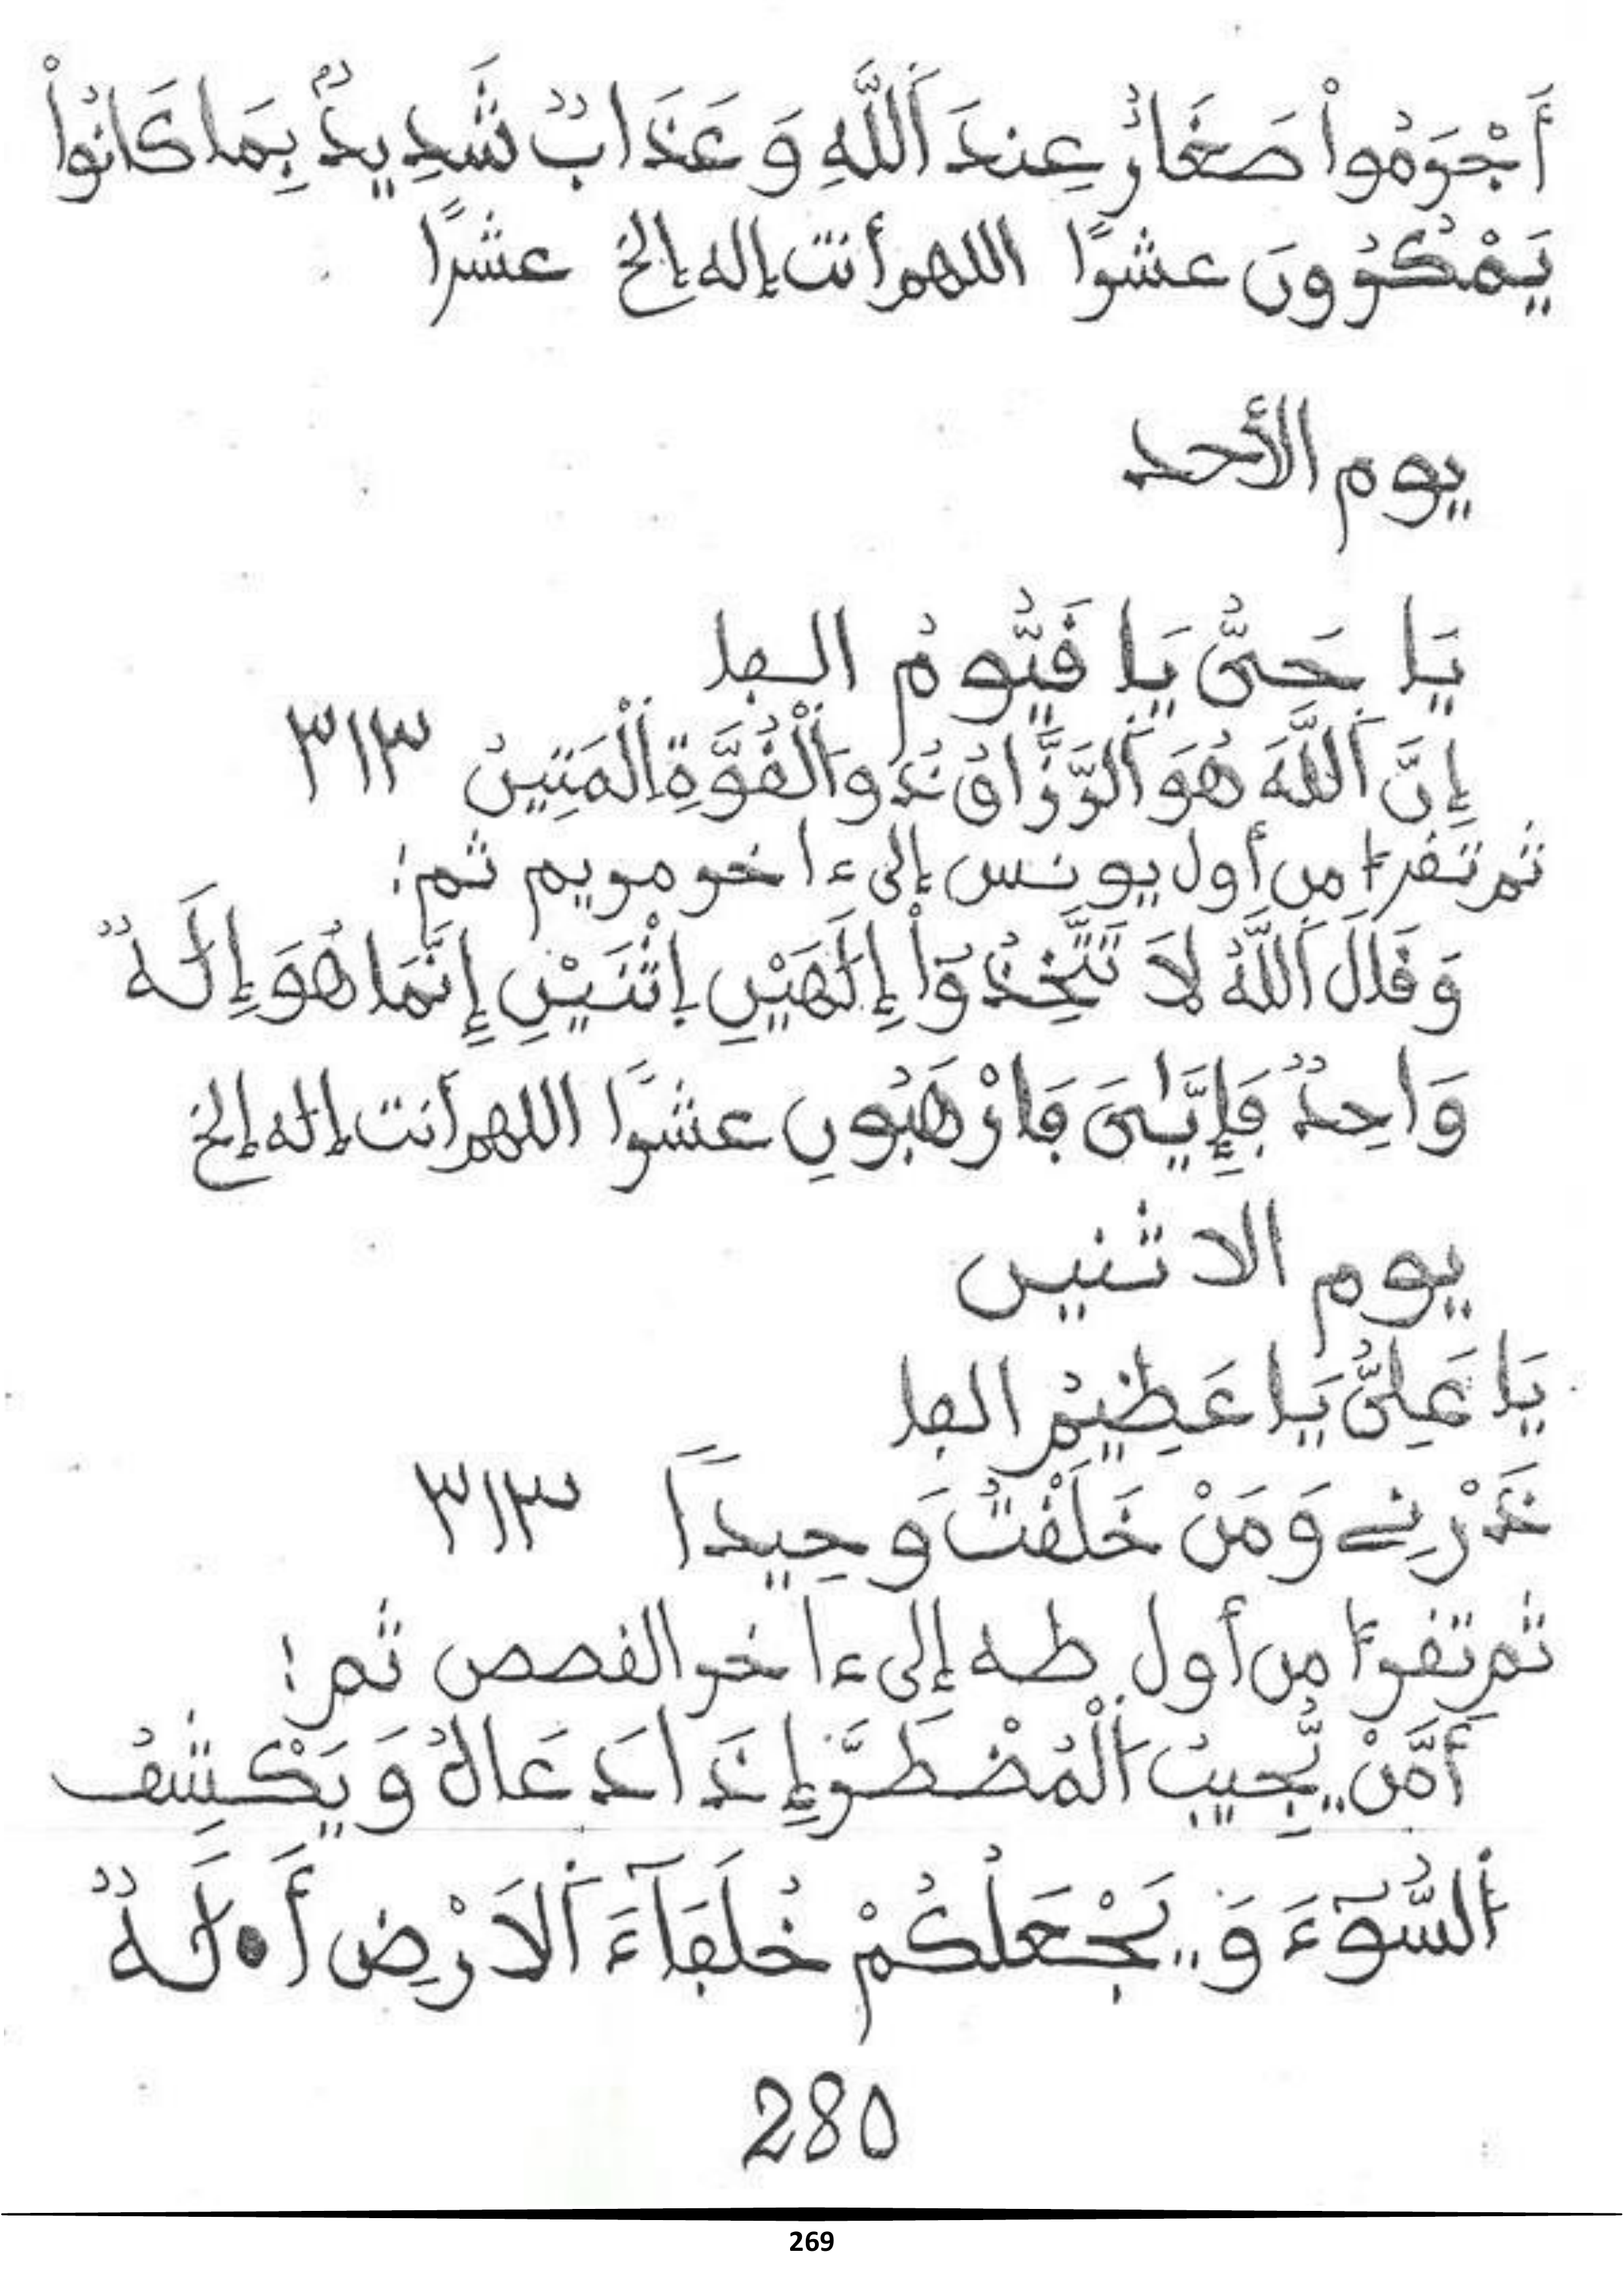 أَجْرَمُواْ صَغَارٌ عِندَ اَللَّهِ وَعَذَابٌ شَدِيدٌ بِمَا كَانُواْ
يَمْكُرُونَ عشرًا اللهم أنت إله إلخ عشرًا
يوم الأحد
يَا حَىُّ يَا قَيُّومُ الفا
إِنَّ اَللَّهَ هُوَ اَلرَّزَّاقُ ذُو اَلْقُوَّةِ اِلْمَتِينُ ٣١٣
ثم تقرأ من أول يونس إلى ءاخر مريم ثم:
وَقَالَ اَللَّهُ لاَ تَتَّخِذُوٓاْ إِلَٰهَيْنِ اِثْنَيْنِ إِنَّمَا هُوَ إِلَٰهٌ
وَاحِدٌ فَإِيَّٰىَ فَارْهَبُونِ عشرًا اللهم أنت إله إلخ
يوم الاثنين
يَا عَلِىُّ يَا عَظِيمُ الفا
ذَرْنِے وَمَنْ خَلَقْتُ وَحِيدًا ٣١٣
ثم تقرأ من أول طه إلى ءاخر القصص ثم:
أَمَّنْ يُّجِيبُ اَلْمُضْطَرَّ إِذَا دَعَاهُ وَيَكْشِفُ
اَلسُّوٓءَ وَيَجْعَلُكُمْ خُلَفَآءَ اَلَارْضِ أَ.لَٰهٌ
280
269